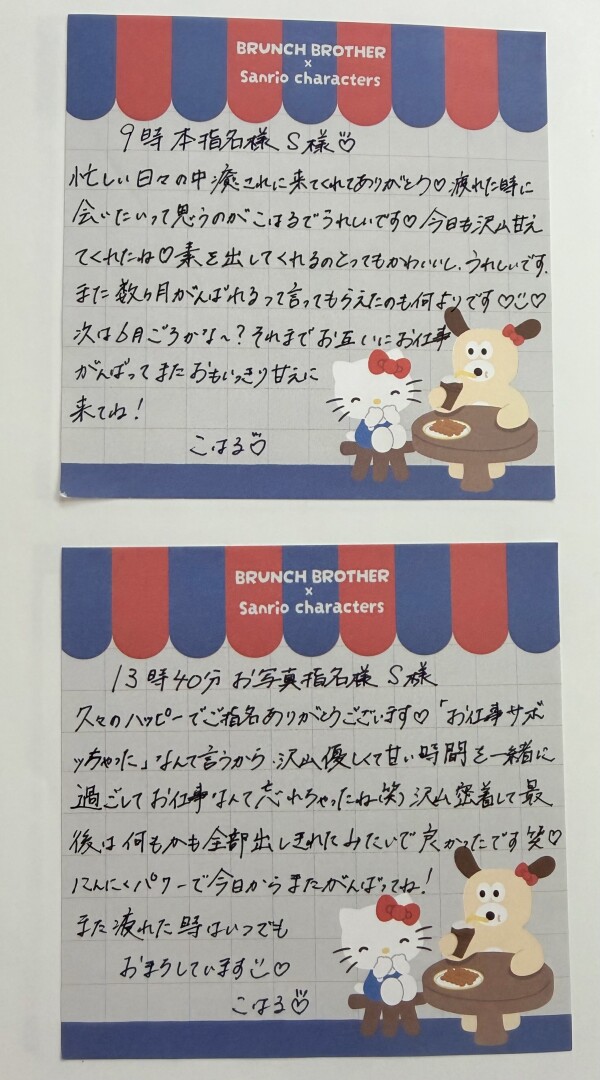 BRUNCH BROTHER
×
Sanrio characters
9時 本指名様 S様♡
忙しい日々の中 癒されに来てくれてありがとう♡ 疲れた時に
会いたいって思うのがこはるでうれしいです♡ 今日も沢山甘え
てくれたね♡ 素を出してくれるのとってもかわいいし、うれしいです、
また数ヶ月がんばれるって言ってもらえたのも何よりです♡☺♡
次は6月ごろかな〜? それまでお互いにお仕事
がんばってまたおもいっきり甘えに
来てね!
こはる♡
BRUNCH BROTHER
×
Sanrio characters
13時40分 お写真指名様 S様
久々のハッピーでご指名ありがとうございます♡ 「お仕事サボ
ッちゃった」なんて言うから、沢山優しくて甘い時間を一緒に
過ごしてお仕事なんて忘れちゃったね(笑) 沢山密着して最
後は何もかも全部出しきれたみたいで良かったです笑♡
にんにくパワーで今日からまたがんばってね!
また疲れた時はいつでも
おまちしています☺♡
こはる♡